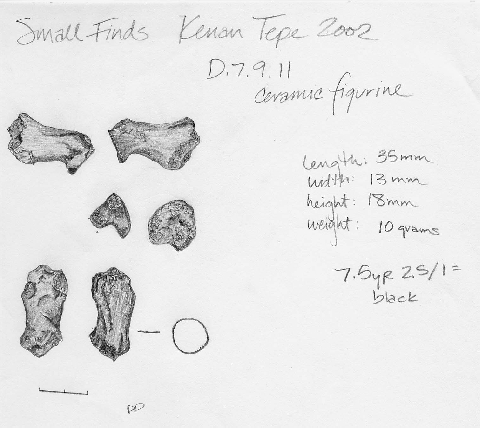 Small Finds Kenan Tepe 2002
D.7.9.11
ceramic figurine
length: 35mm
width: 13mm
height: 18mm
weight: 10 grams
7.5yr 2.5/1 =
black